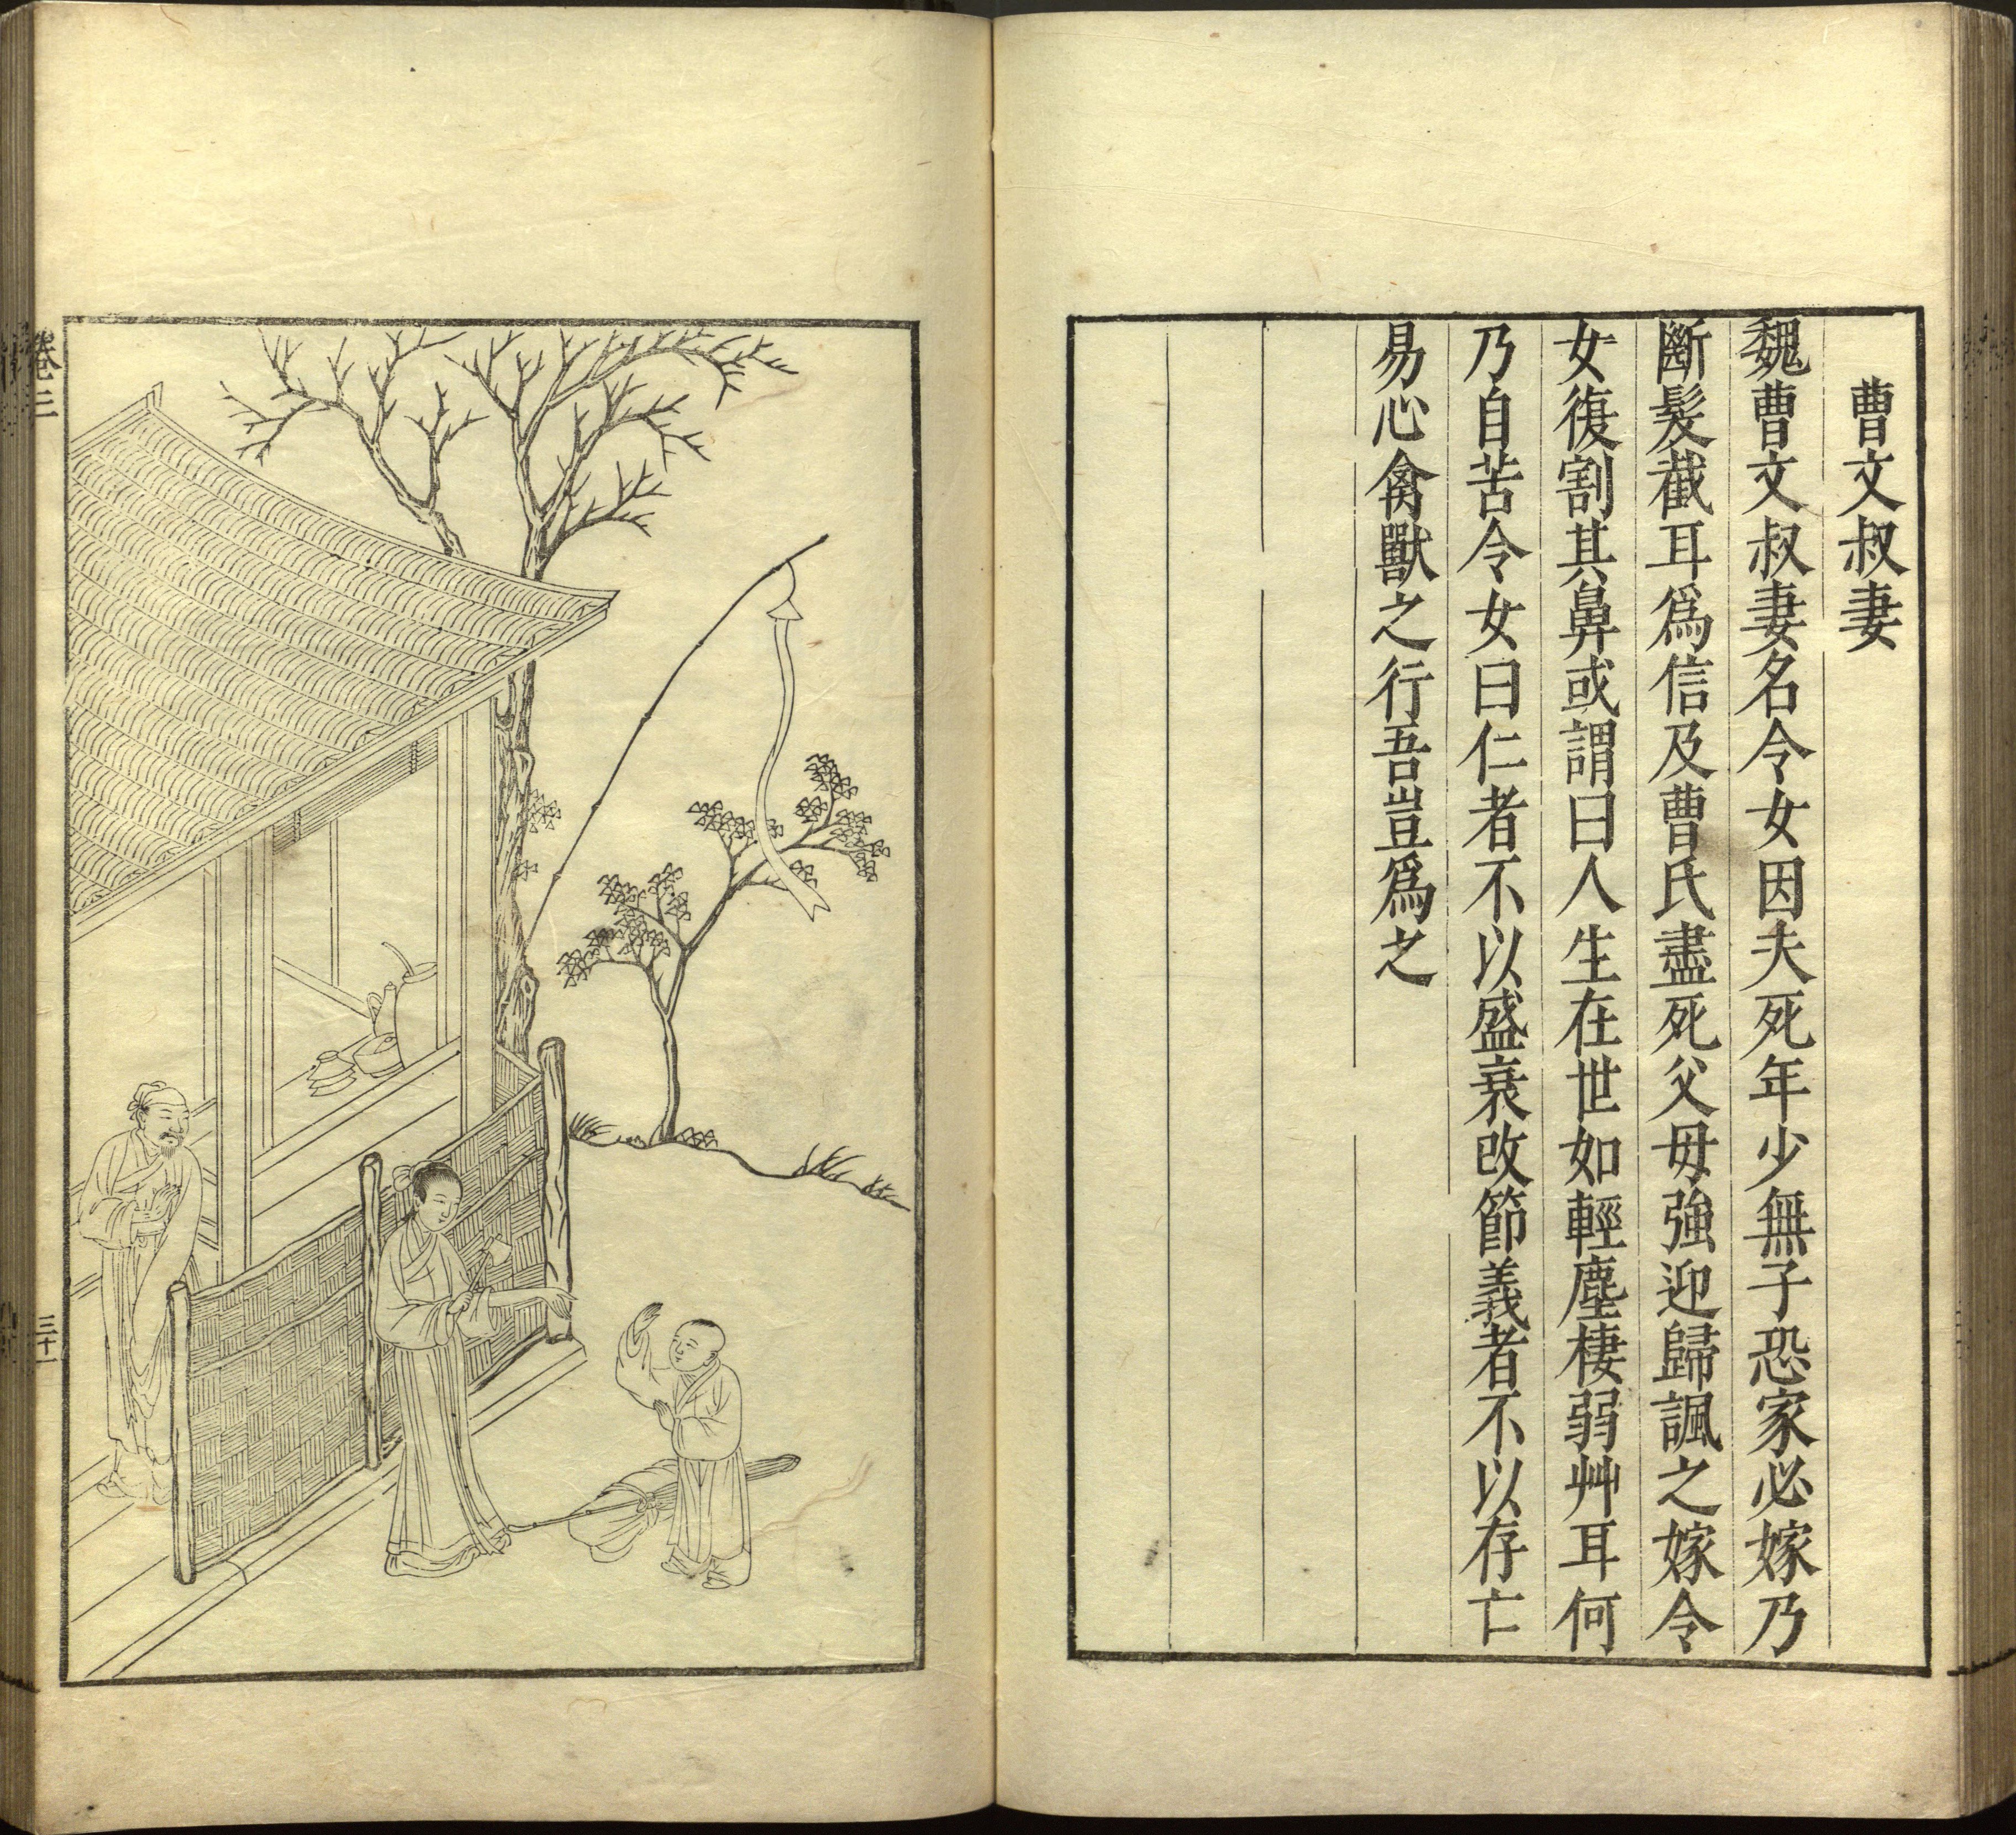 曹文叔妻
魏曹文叔妻名令女因夫死年少無子恐家必嫁乃
斷髮截耳爲信及曹氏盡死父母強迎歸諷之嫁令
女復割其鼻或謂曰人生在世如輕塵棲弱艸耳何
乃自苦令女曰仁者不以盛衰改節義者不以存亡
易心禽獸之行吾豈爲之
卷三
三十一